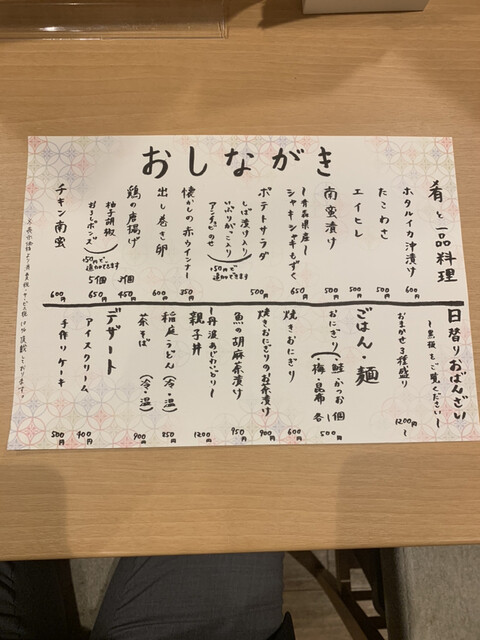 おしながき
肴と一品料理
ホタルイカ沖漬け 600円
たこわさ 500円
エイヒレ 500円
南蛮漬け 500円
~青森県産~
シャキシャキもずく 650円
ポテトサラダ 500円
(しば漬け入り
いぶりがっこ入り)
アンチョビのせ
+50円で
追加できます
懐かしの赤ウインナー 350円
出し巻き卵 600円
鶏の唐揚げ 3個 450円
5個 650円
(柚子胡椒
おろしポンズ)
+50円で
追加できます
チキン南蛮 600円
日替りおばんざい
~黒板をご覧ください~
おまかせ3種盛り 1200円~
ごはん・麺
おにぎり(・鮭・かつお
・梅・昆布) 各1個 500円
焼きおにぎり 600円
焼きおにぎりのお茶漬け 900円
魚の胡麻茶漬け 950円
~丹波あじわいどり~
親子丼 1200円
稲庭うどん(冷・温) 850円
茶そば(冷・温) 900円
デザート
アイスクリーム 400円
手作りケーキ 500円